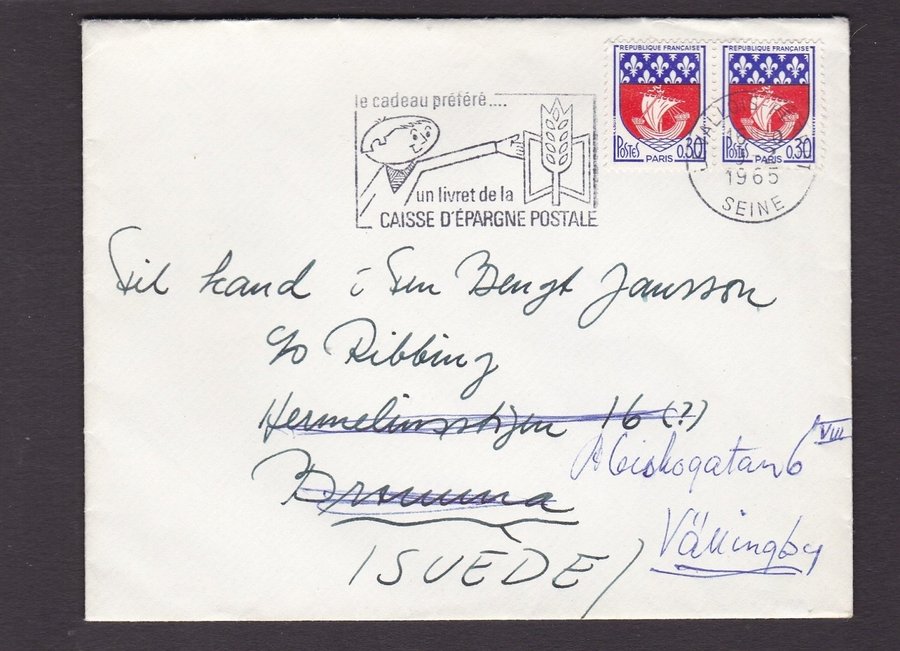 REPUBLIQUE FRANÇAISE REPUBLIQUE FRANÇAISE
POSTES PARIS 0,30 POSTES PARIS 0,30
1965
SEINE
le cadeau préféré....
un livret de la
CAISSE D'ÉPARGNE POSTALE
Till hand: Sten Bengt Jansson
c/o Ribbing
Hermelinsstigen 16 (?)
Abiskogatan 6 VIII
Bromma
Vällingby
(SUÈDE)